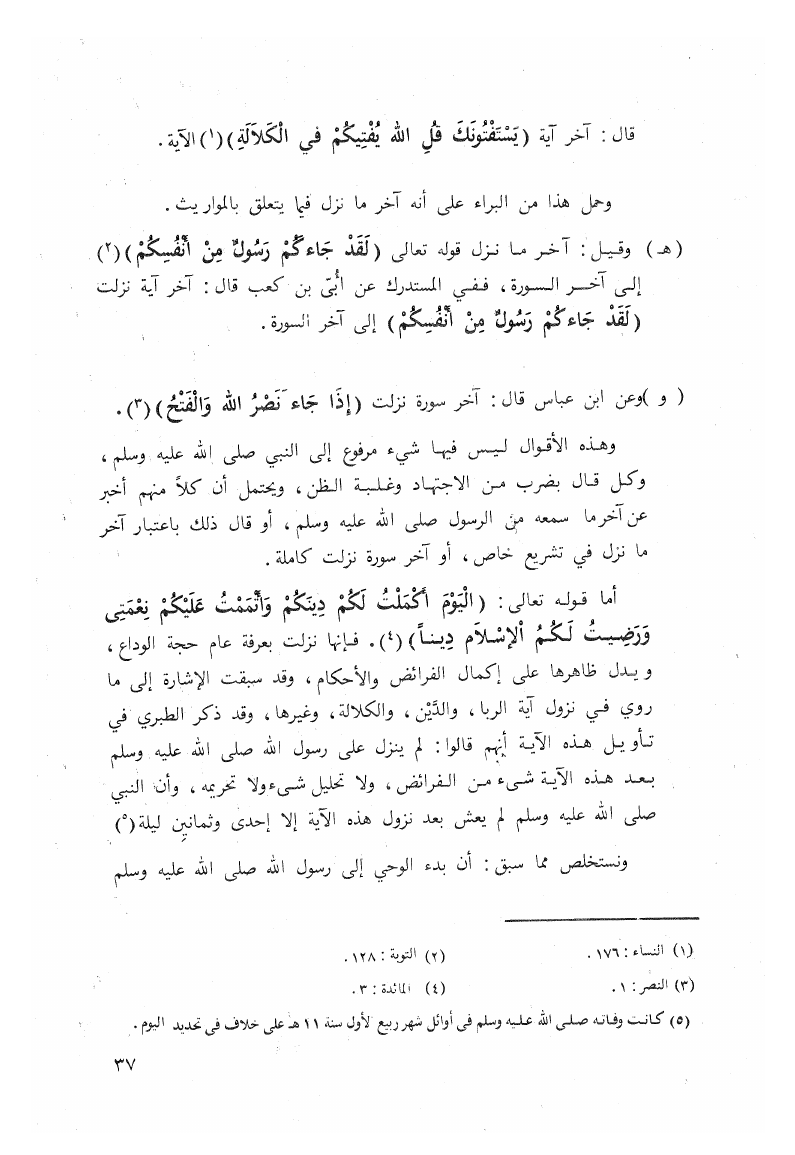 قال : آخر آية (يَسْتَفْتُونَكَ قُلِ الله يُفْتِيكُمْ في الْكَلاَلَةِ)(١) الآية .
وحمل هذا من البراء على أنه آخر ما نزل فيما يتعلق بالمواريث .
(هـ) وقيل : آخر ما نزل قوله تعالى (لَقَدْ جَاءكُمْ رَسُولٌ مِنْ أَنْفُسِكُمْ)(٢)
إلى آخر السورة ، ففي المستدرك عن أُبَيّ بن كعب قال : آخر آية نزلت
(لَقَدْ جَاءكُمْ رَسُولٌ مِنْ أَنْفُسِكُمْ) إلى آخر السورة .
( و )وعن ابن عباس قال : آخر سورة نزلت (إِذَا جَاء نَصْرُ الله وَالْفَتْحُ)(٣) .
وهذه الأقوال ليس فيها شيء مرفوع إلى النبي صلى الله عليه وسلم ،
وكل قال بضرب من الاجتهاد وغلبة الظن ، ويحتمل أن كلاً منهم أخبر
عن آخر ما سمعه من الرسول صلى الله عليه وسلم ، أو قال ذلك باعتبار آخر
ما نزل في تشريع خاص ، أو آخر سورة نزلت كاملة .
أما قوله تعالى : (الْيَوْمَ أَكْمَلْتُ لَكُمْ دِينَكُمْ وَأَتْمَمْتُ عَلَيْكُمْ نِعْمَتِى
وَرَضِيتُ لَكُمُ اْلإِسْلاَم دِيناً)(٤) . فإنها نزلت بعرفة عام حجة الوداع ،
ويدل ظاهرها على إكمال الفرائض والأحكام ، وقد سبقت الإشارة إلى ما
روي في نزول آية الربا ، والدَّيْن ، والكلالة ، وغيرها ، وقد ذكر الطبري في
تأويل هذه الآية أنهم قالوا : لم ينزل على رسول الله صلى الله عليه وسلم
بعد هذه الآية شيء من الفرائض ، ولا تحليل شيء ولا تحريمه ، وأن النبي
صلى الله عليه وسلم لم يعش بعد نزول هذه الآية إلا إحدى وثمانين ليلة(٥)
ونستخلص مما سبق : أن بدء الوحي إلى رسول الله صلى الله عليه وسلم
(١) النساء : ١٧٦ . (٢) التوبة : ١٢٨ .
(٣) النصر : ١ . (٤) المائدة : ٣ .
(٥) كانت وفاته صلى الله عليه وسلم فى أوائل شهر ربيع لأول سنة ١١ هـ على خلاف فى تحديد اليوم .
٣٧